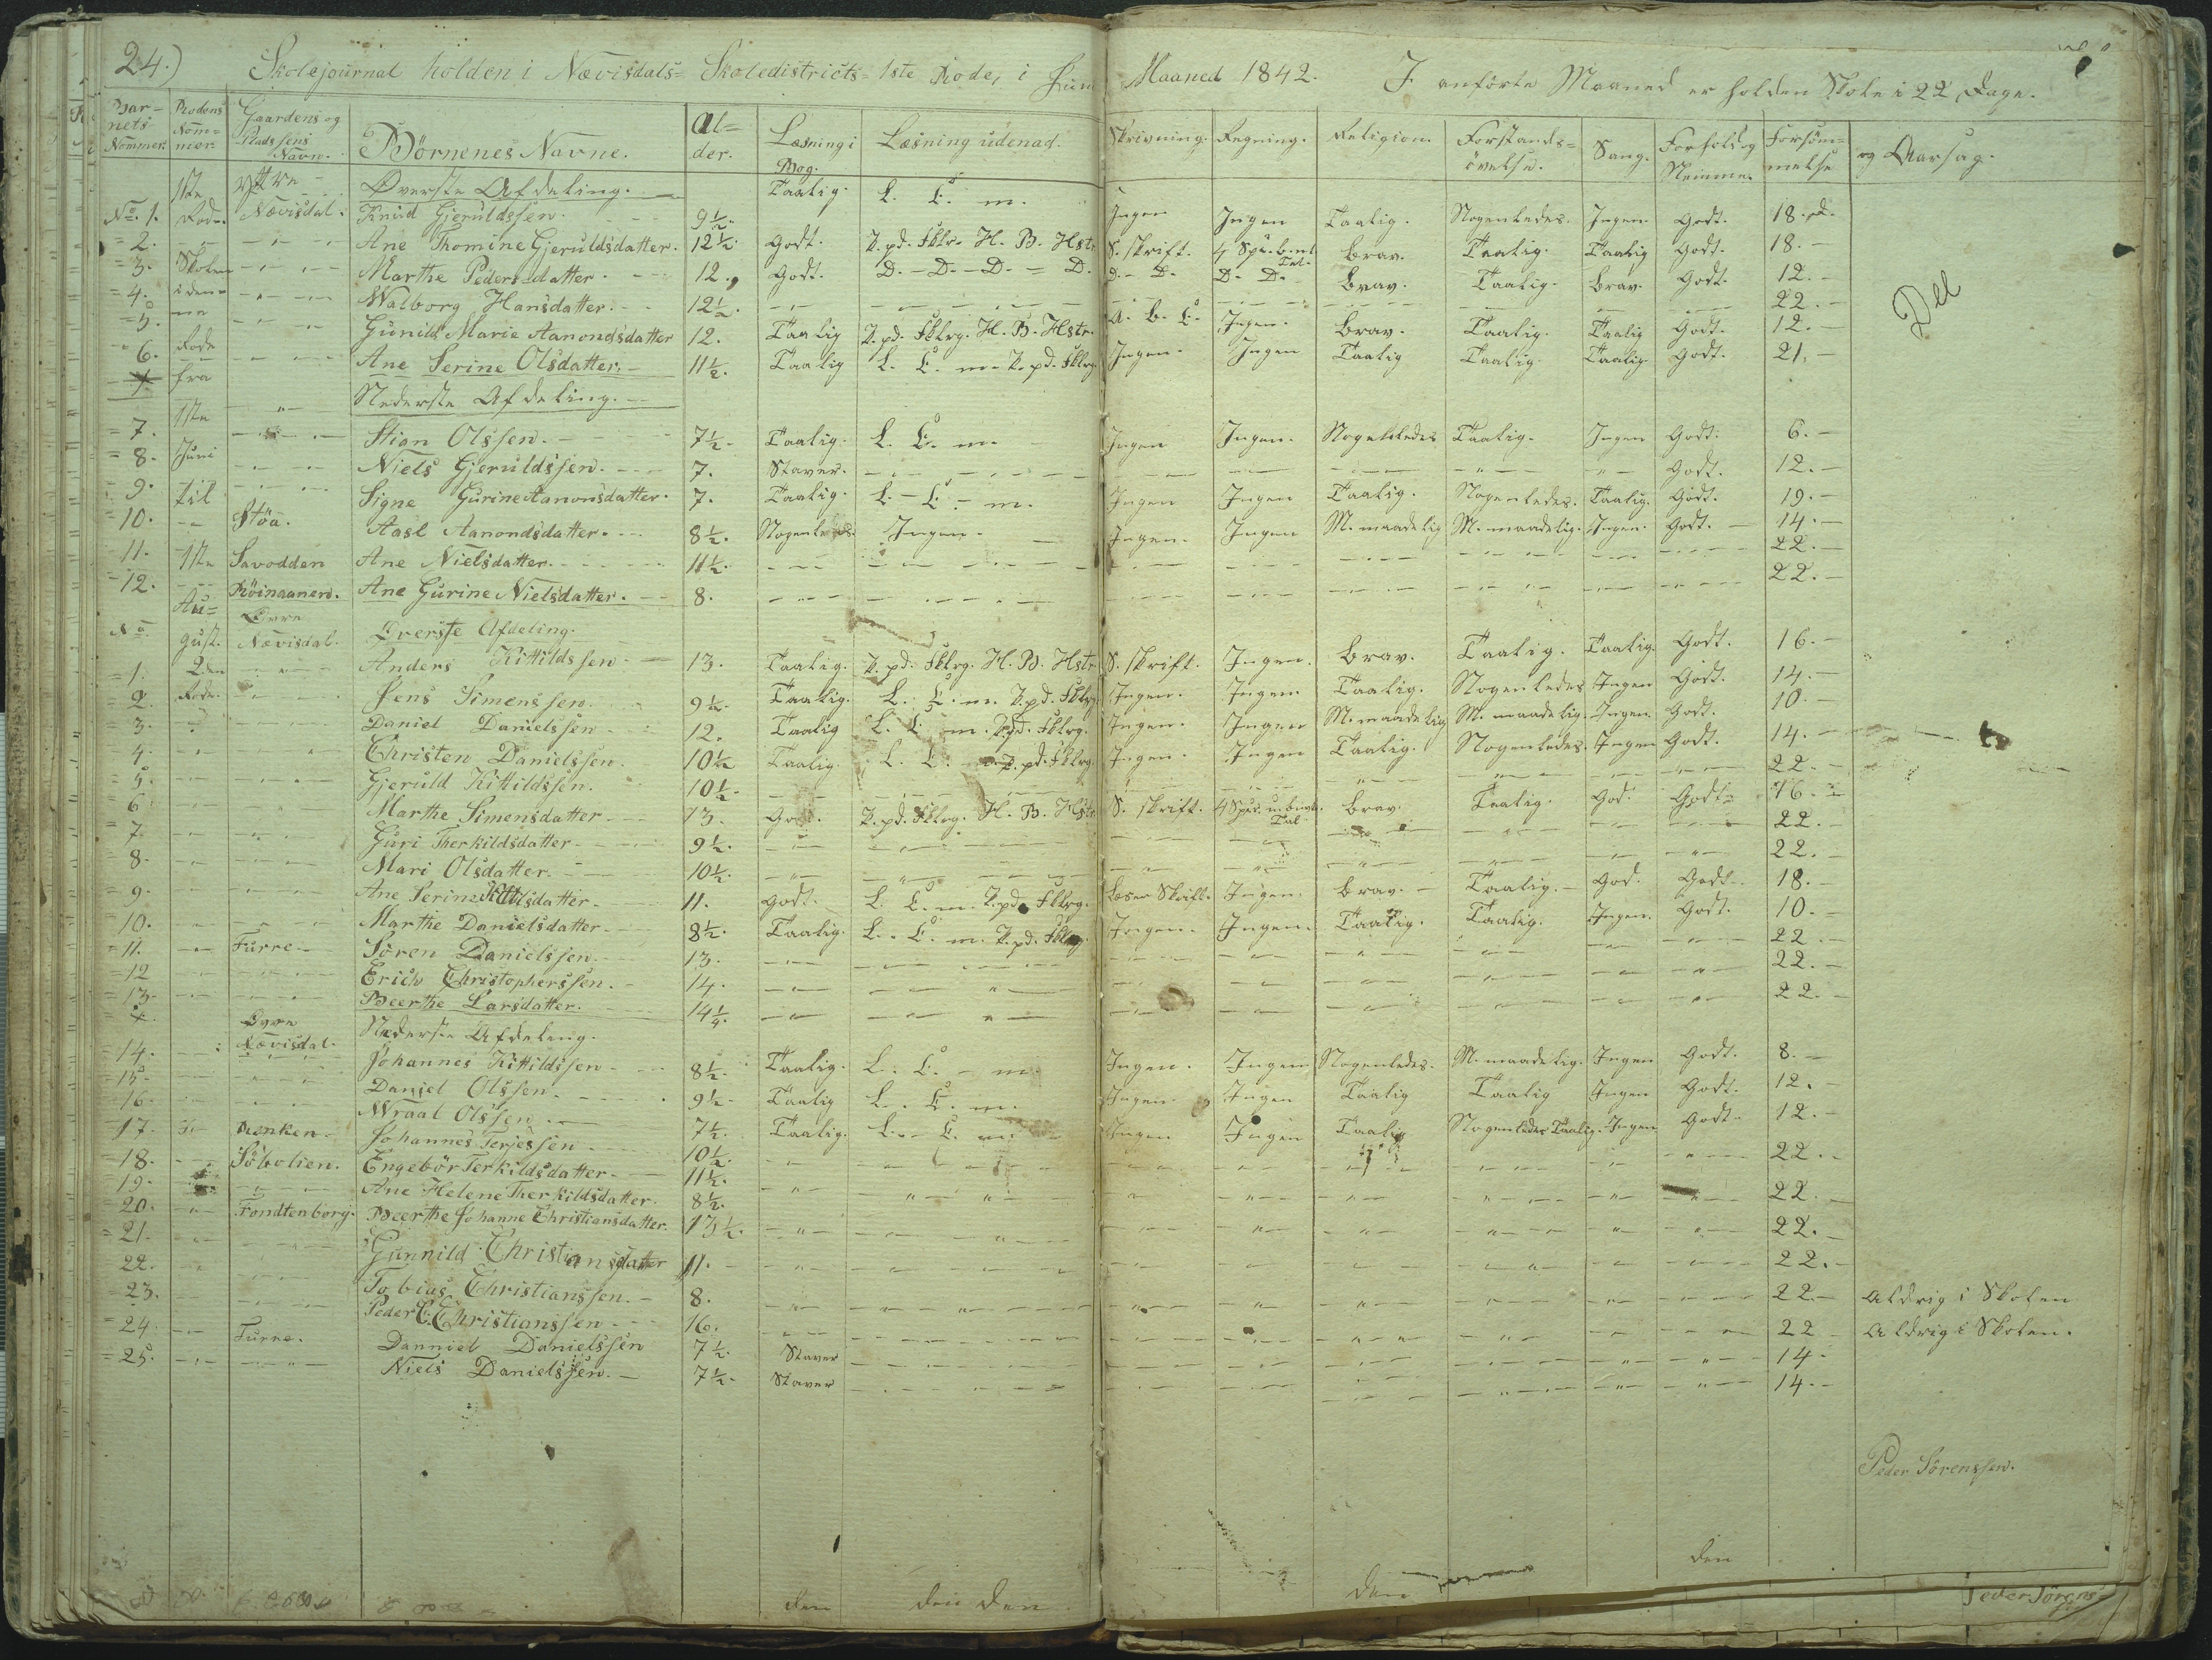 24.)
Skolejournal holden i Nævisdals= Skoledistricts= 1ste Rode, i Juni Maaned 1842. I anförte Maaned er holden Skole i 22 Dage.
Bar= nets Nommer. Rodens Nom= mer. Gaardens og Pladssens Navn. Börnenes Navne. Al= der. Læsning i Bog. Læsning udenad. Skrivning. Regning. Religion. Forstands= övelse. Sang. Forhold og Nemme. Forsöm= melse og Aarsag.
1ste Yttre Överste Afdeling.
No. 1. Rode. Nævisdal. Knud Gjeruldssen. 9½. Taalig. L. C. m. Ingen Ingen Taalig. Nogenledes. Ingen. Godt. 18. D.
2. Ane Thomine Gjeruldsdatter. 12½. Godt. P. pd. Fklr. H. B. Hstr. S. skrift. 4 Spe. Brav. Taalig. Taalig Godt. 18.
3. Skolen Marthe Pedersdatter. 12. Godt. D. D. D. D. D. D. D. D. Brav. Taalig. Brav. Godt. 12.
4. i den= Walborg Hansdatter. 12½. 22.
5. ne Gunild Marie Aanondsdatter 12. Taalig P. pd. Fklrg. H. B. Hstr. A. b. C. Ingen. Brav. Taalig. Taalig Godt. 12.
6. Rode Ane Serine Olsdatter. 11½. Taalig L. C. m. P. pd. Fklrg. Ingen. Ingen Taalig Taalig. Taalig. Godt. 21.
fra Nederste Afdeling.
7. 1ste Stian Olssen. 7½. Taalig. L. C. m. Ingen Ingen. Nogenledes Taalig. Ingen Godt. 6.
8. Juni Niels Gjeruldssen. 7. Staver. Godt. 12.
9. til Signe Gurine Aanonsdatter. 7. Taalig. L. C. m. Ingen Ingen Taalig. Nogenledes. Taalig. Godt. 19.
10. Stöa. Aase Aanondsdatter. 8½. Nogenledes. Ingen. Ingen. Ingen M. maadelig M. maadelig. Ingen. Godt. 14.
11. 1ste Savodden Ane Nielsdatter. 11½. 22.
12. Au= Röinaanen. Ane Gurine Nielsdatter. 8. 22.
No. gust. Övre Nævisdal. Överste Afdeling.
1. 2den Anders Kittildssen. 13. Taalig. P. pd. Fklrg. H. B. Hstr. S. skrift. Ingen. Brav. Taalig. Taalig. Godt. 16.
2. Rode. Jens Simenssen. 9½. Taalig. L. C. m. P. pd. Fklrg. Ingen. Ingen. Taalig. Nogenledes Ingen Godt. 14.
3. Daniel Danielssen 12. Taalig L. C. m. P. pd. Fklrg. Ingen. Ingen M. maadelig M. maadelig. Ingen. Godt. 10.
4. Christen Danielssen. 10½ Taalig L. C. m. P. pd. Fklrg. Ingen. Ingen Taalig. Nogenledes. Ingen Godt. 14.
5. Gjeruld Kittildssen. 10½. 22.
6. Marthe Simensdatter. 13. Godt. P. pd. Fklrg. H. B. Hstr. S. skrift. 4 Spe. Brav. Taalig. God. Godt. 16.
7. Guri Therkildsdatter. 9½. 22.
8. Mari Olsdatter. 10½. 22.
9. Ane Serine datter. 11. Godt. L. C. m. P. pd. Fklrg. Læser Skrift. Ingen. Brav. Taalig. God. Godt. 18.
10. Marthe Danielsdatter. 8½. Taalig. L. C. m. P. pd. Fklrg. Ingen. Ingen. Taalig. Taalig. Ingen. Godt. 10.
11. Furre. Sören Danielssen. 13. 22.
12. Erich Christopherssen. 14. 22.
13. Beerthe Larsdatter. 14¼. 22.
Övre Nævisdal. Nederste Afdeling.
14. Johannes Kittildssen. 8½. Taalig. L. C. m. Ingen. Ingen Nogenledes. M. maadelig. Ingen Godt. 8.
15. Daniel Olssen. 9½. Taalig L. C. m. Ingen. Ingen Taalig Taalig Ingen Godt. 12.
16. Wraal Olssen. 7½. Taalig. L. C. m. Ingen Ingen Taalig Nogenledes Taalig. Ingen Godt. 12.
17. Renken. Johannes Terjessen. 10½. 22.
18. Söbolien. Engebör Terkildsdatter. 11½. 22.
19. Ane Helene Therkildsdatter. 8½. 22.
20. Fondtenborg. Beerthe Johanne Christiansdatter. 13½. 22.
21. Gunnild Christiansdatter 11. 22.
22. Tobias Christianssen. 8. 22. Aldrig i Skolen
23. Peder C. Christianssen. 16. 22 Aldrig i Skolen.
24. Furre. Danniel Danielssen 7½. Staver 14.
25. Niels Danielssen. 7½. Staver 14.
Del
Peder Sörenssen.
den den den den den
Peder Sörens=